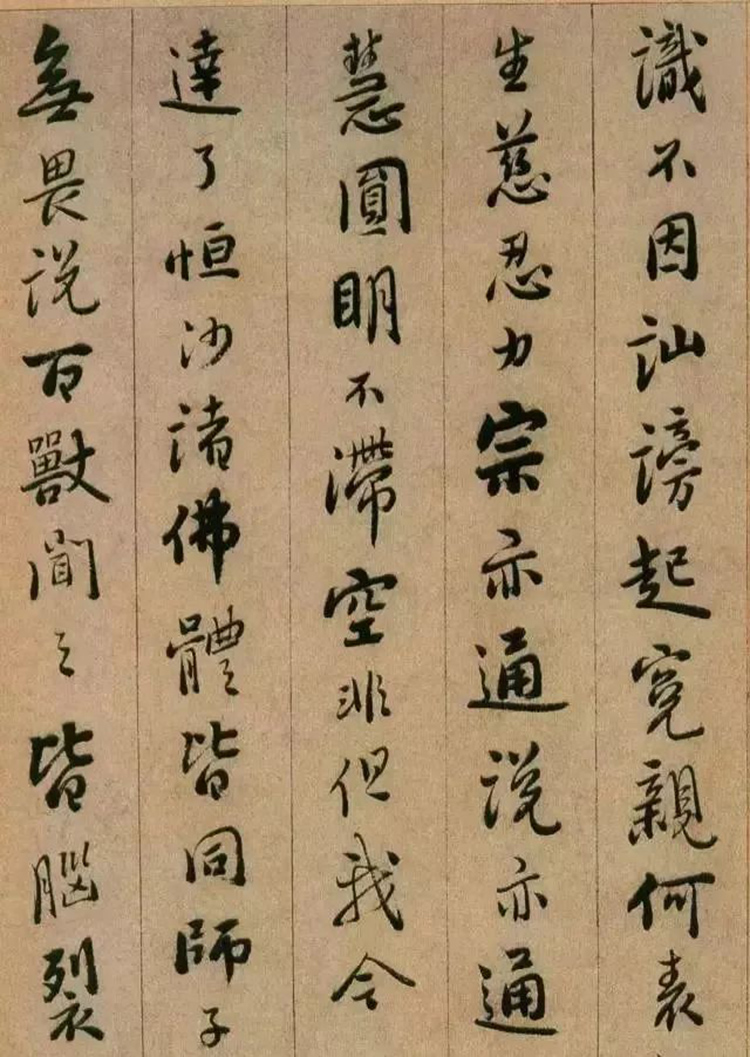 識不因訕謗起冤親何表
生慈忍力宗亦通説亦通
慧圓明不滯空非但我今
達了恒沙諸佛體皆同師子
無畏説百獸聞之皆腦裂